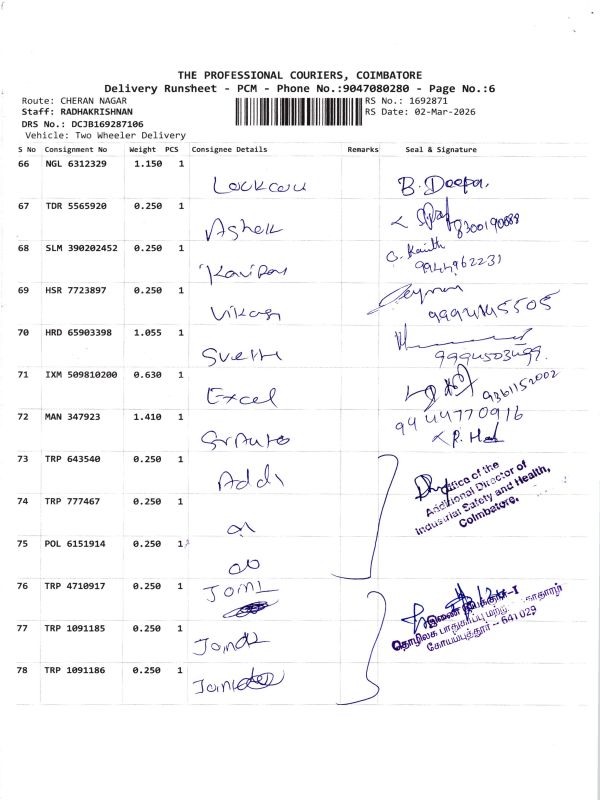 THE PROFESSIONAL COURIERS, COIMBATORE
Delivery Runsheet - PCM - Phone No.:9047080280 - Page No.:6
Route: CHERAN NAGAR
RS No.: 1692871
Staff: RADHAKRISHNAN
RS Date: 02-Mar-2026
DRS No.: DCJB169287106
Vehicle: Two Wheeler Delivery
S No Consignment No Weight PCS Consignee Details Remarks Seal & Signature
66 NGL 6312329 1.150 1
B. Deepa.
67 TDR 5565920 0.250 1
Ashok
8300190888
68 SLM 390202452 0.250 1
9944962231
69 HSR 7723897 0.250 1
Vikas
9994145505
70 HRD 65903398 1.055 1
9994503499.
71 IXM 509810200 0.630 1
Excel
9361152002
72 MAN 347923 1.410 1
9444770916
Sri Auto
73 TRP 643540 0.250 1
Addi
Office of the
Additional Director of
Industrial Safety and Health,
Coimbatore.
74 TRP 777467 0.250 1
75 POL 6151914 0.250 1
76 TRP 4710917 0.250 1
Joint
தொழிலக பாதுகாப்பு மற்றும் சுகாதாரம்
கோயம்புத்தூர் - 641 029
77 TRP 1091185 0.250 1
78 TRP 1091186 0.250 1